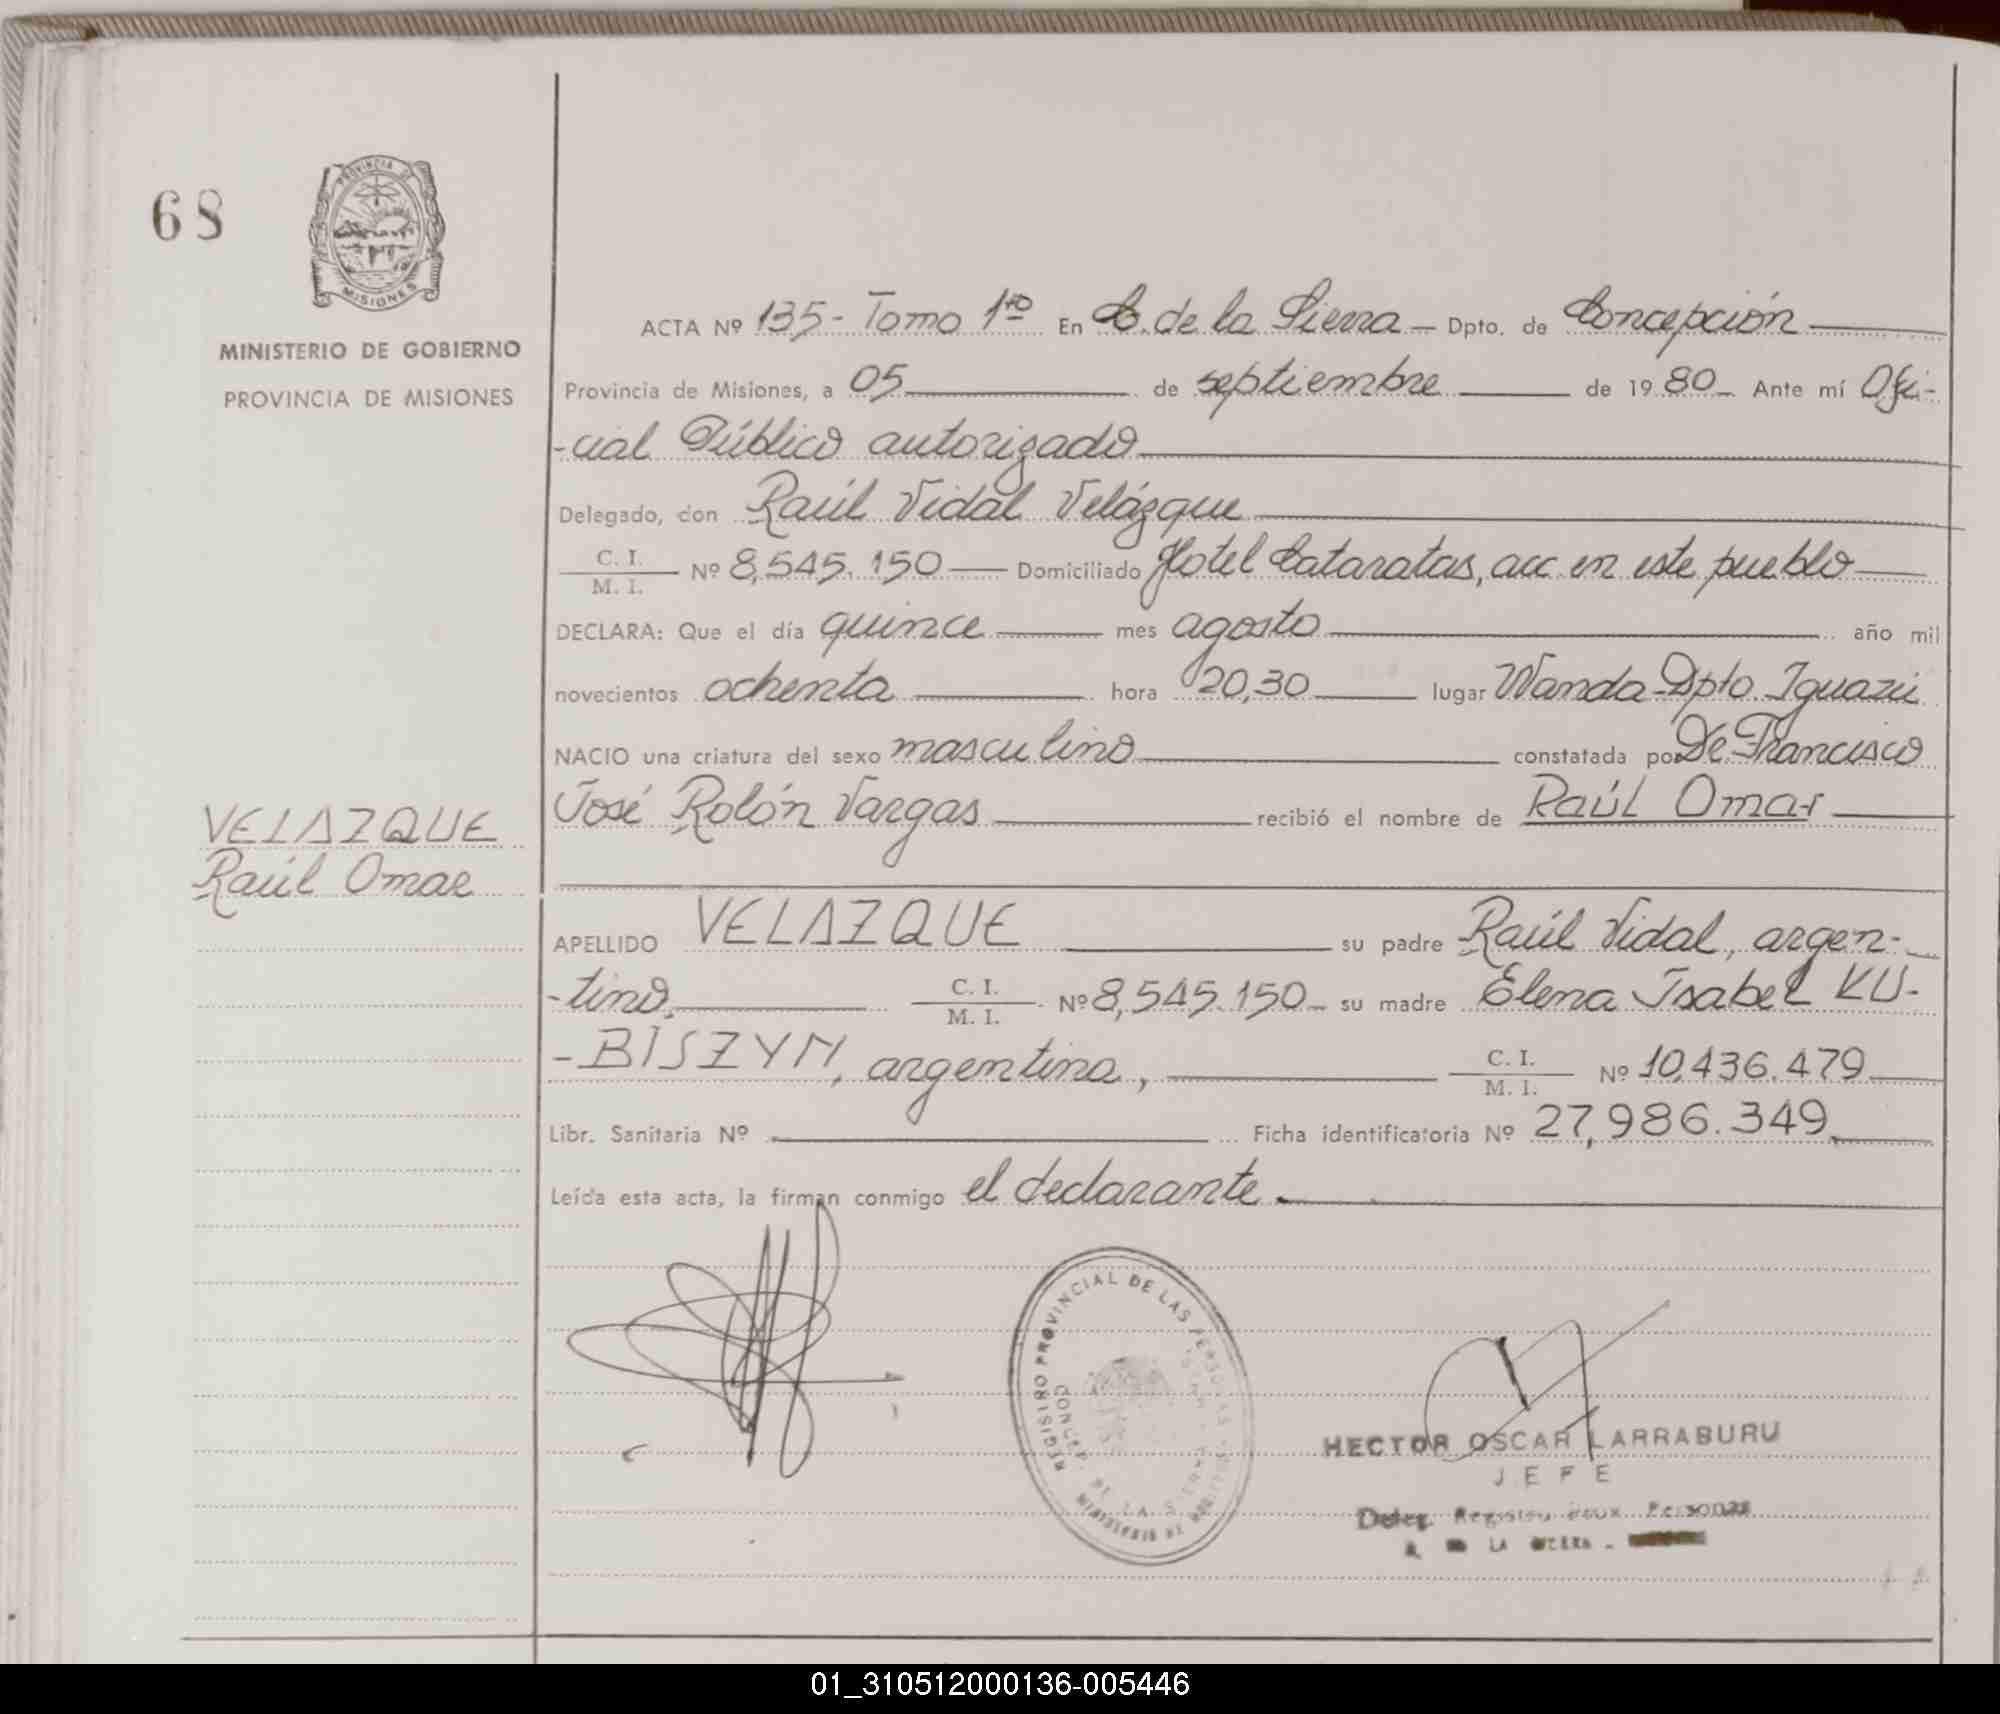 68
PROVINCIA DE
MISIONES
MINISTERIO DE GOBIERNO
PROVINCIA DE MISIONES
ACTA Nº 135- Tomo 1ro En C. de la Sierra - Dpto. de Concepción
Provincia de Misiones, a 05 de septiembre de 1980 - Ante mí Ofi-
-cial Público autorizado
Delegado, don Raúl Vidal Velázque
C. I.
M. I. Nº 8,545.150 Domiciliado Hotel Cataratas, acc en este pueblo
DECLARA: Que el día quince mes agosto año mil
novecientos ochenta hora 20,30 lugar Wanda-Dpto Iguazú
NACIO una criatura del sexo masculino constatada por De Francisco
José Rolón Vargas recibió el nombre de Raúl Omar
VELAZQUE
Raúl Omar
APELLIDO VELAZQUE su padre Raúl Vidal, argen-
-tino, C. I.
M. I. Nº 8,545.150 - su madre Elena Isabel KU-
-BISZYN, argentina, C. I.
M. I. Nº 10,436.479
Libr. Sanitaria Nº Ficha identificatoria Nº 27,986.349
Leída esta acta, la firman conmigo el declarante.
REGISTRO PROVINCIAL DE LAS PERSONAS
CONCEP. DE LA SIERRA
MINISTERIO DE
HECTOR OSCAR LARRABURU
JEFE
Deleg. Registro Personas
LA
01_310512000136-005446